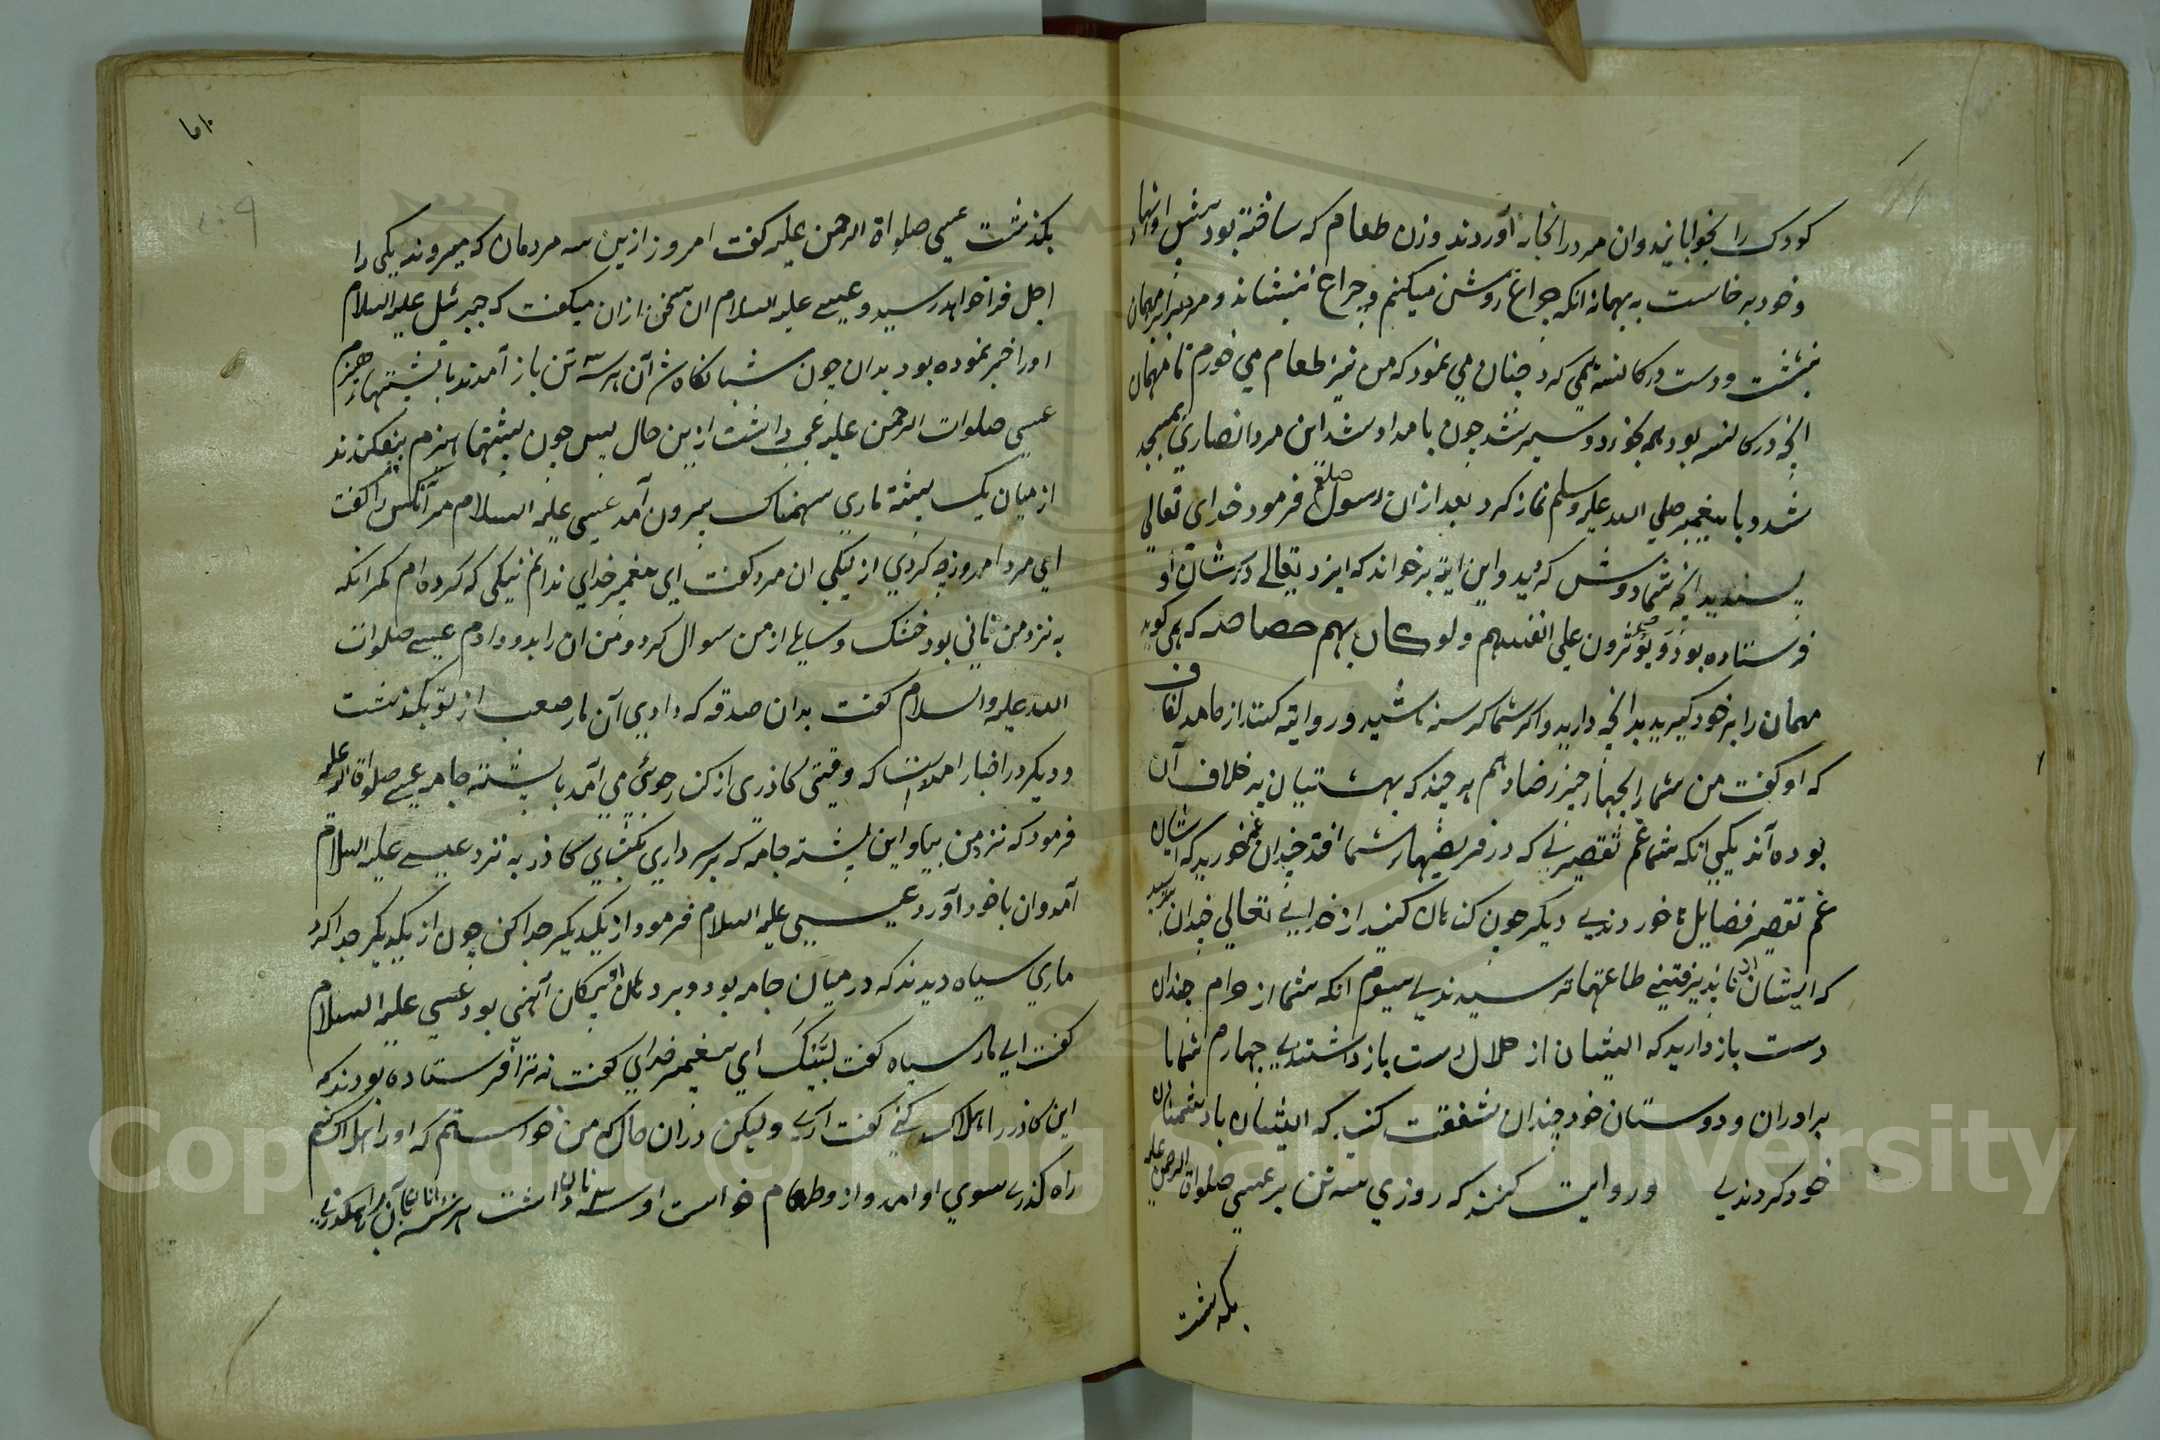 کودک را بخوابانید وان مرد را بخانه آوردند وزن طعام که ساخته بود پیش او نهاد
وخود برخاست به بهانه انکه چراغ روشن میکنم وچراغ بنشاند ومرد برابر مهمان
بنشست ودست در کاسه همی کرد چنان می نمود که من نیز طعام می خورم تا مهمان
انچه در کاسه بود همه بخورد وسیر شد چون بامداد شد این مرد انصاری بمسجد
شد وبا پیغمبر صلی الله علیه وسلم نماز کرد بعد ازان رسول صلعم فرمود خدای تعالی
پسندید انچه شما دوش کردید واین ایة برخواند که ایزد تعالی در شان او
فرستاده بود ویؤثرون علی انفسهم ولو کان بهم خصاصه که همی کوید
مهمان را بر خود کیرید بدانچه دارید واکر شما کرسنه باشید وروایة کنند از حامد لفاف
که او کفت من شمارا بچهار چیز رضا دهم هر چند که بهشتیان بر خلاف آن
بوده آند یکی انکه شما غم تقصیری که در فریضهاء شما افتد چندان غم خورید که ایشان
غم تقصیر فضایل نا خوردندی دیکر چون کناهان کنید از خدای تعالی چندان بترسید
که ایشان از نا پذیرفتنی طاعتها ترسیدندی سیوم انکه شما از حرام چندان
دست باز دارید که ایشان از حلال دست باز داشتندی چهارم شما با
برادران ودوستان خود چندان شفقت کنید که ایشان با دشمنان
خود کردندی وروایت کنند که روزی سه تن بر عیسی صلواة الرحمن علیه
بکذشت
بکذشت عیسی صلواة الرحمن علیه کفت امروز ازین سه مردمان که میروند یکی را
اجل فرا خواهد رسید وعیسی علیه السلام ان سخن ازان میکفت که جبرئیل علیه السلام
اورا خبر نموده بود بدان چون شبانکاه شد آن هر سه تن باز آمدند با پشتهاء هیزم
عیسی صلوات الرحمن علیه عجب داشت ازین حال پس چون پشتها هیزم بیفکندند
از میان یک پشته ماری سهمناک بیرون آمد عیسی علیه السلام مر آنکس را کفت
ای مرد امروز چه کردی از نیکی ان مرد کفت ای پیغمبر خدای ندانم نیکی که کرده ام مکر انکه
به نزد من نانی بود خشک وسایلی از من سوال کرد ومن ان را بدو دادم عیسی صلوات
الله علیه والسلام کفت بدان صدقه که دادی آن مار صعب از تو بکذشت
ودیکر در اخبار امده است که وقتی کاذری از کنار جوئی می آمد با پشته جامه عیسی صلواة الله علیه
فرمود که نزد من بیا واین پشته جامه که بر سر داری بکشای کاذر به نزد عیسی علیه السلام
آمد وان با خود آورد عیسی علیه السلام فرمود از یکدیکر جدا کن چون از یکدیکر جدا کرد
ماری سیاه دیدند که در میان جامه بود وبر دهان او پیکان آهنی بود عیسی علیه السلام
کفت ای مار سیاه کفت لبیک ای پیغمبر خدای کفت نه ترا فرستاده بودند که
این کاذر را هلاک کنی کفت اری ولیکن دران حال که من خواستم که اورا هلاک کنم
راه کذری سوی او امد واز و طعام خواست او سه نان داشت هر سه نان بآن راهکذری
۱۰۹